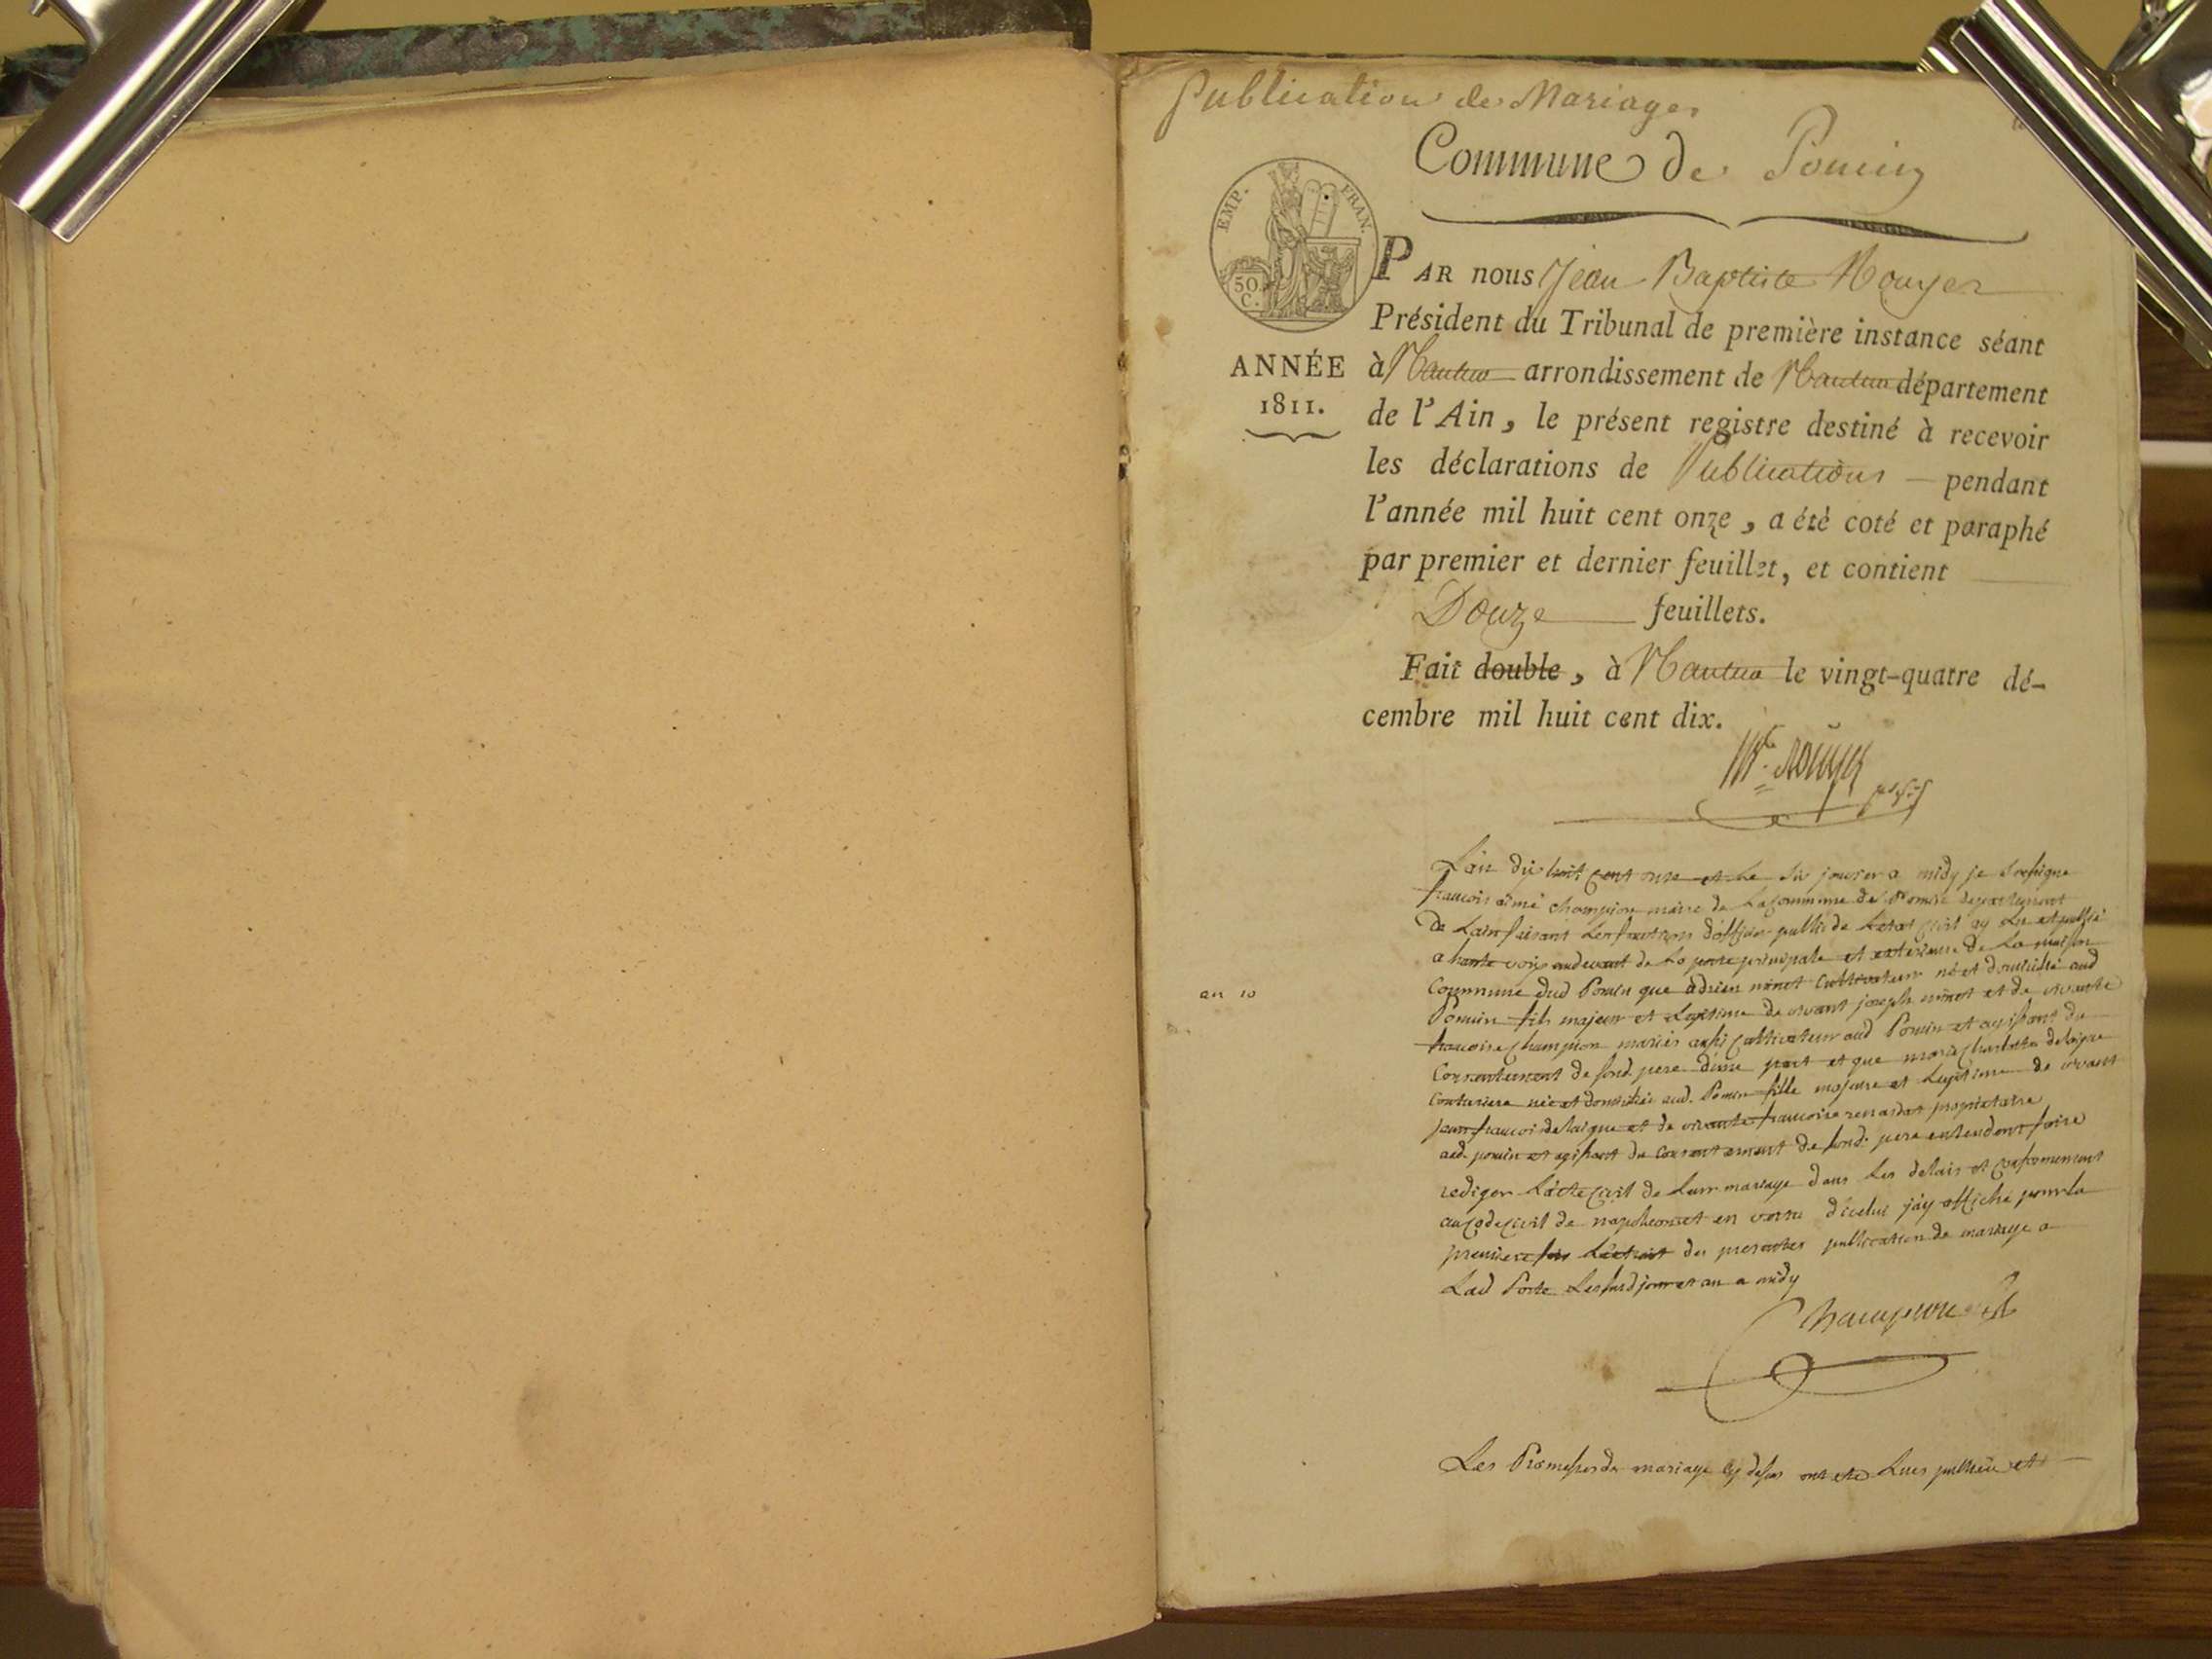 Publication de Mariages
Commune de Poncin
EMP. FRAN.
50.
C.
ANNÉE
1811.
PAR nous Jean Baptiste Rouyer
Président du Tribunal de première instance séant
à Nantua arrondissement de Nantua département
de l'Ain, le présent registre destiné à recevoir
les déclarations de Publications pendant
l'année mil huit cent onze, a été coté et paraphé
par premier et dernier feuillet, et contient
Douze feuillets.
Fait double, à Nantua le vingt-quatre dé-
cembre mil huit cent dix.
L'an dix huit cent onze et le six janvier a midy je soussigne
francois aimé champion maire de la commune de Poncin departement
de Lain faisant les fonctions d'officier public de l'etat civil ay lu et publié
a haute voix audevant de la porte principale et exterieure de la maison
Commune dud Poncin que adrien minet cultivateur né et domicilié aud
Poncin fils majeur et legitime de vivant joseph minet et de vivante
francoise Champion mariés aussi cultivateur aud Poncin et agissant du
Consentement de sond. pere d'une part et que marie Charlotte delaigue
Couturiere née et domiciliée aud. Poncin fille majeure et legitime de vivant
jean francois delaigue et de vivante francoise renardat proprietaire
aud. poncin et agissant du consentement de sond. pere entendent faire
rediger L'acte Civil de Leur mariage dans Les delais et conformement
au Code Civil de napoleon et en vertu d'icelui j'ay affiché pour la
premiere fois L'extrait des presentes publication de mariage a
Lad Porte Les susd jour et an a midy
Champion
an 10
Les Promesses de mariage cy dessus ont ete Lues publiées et